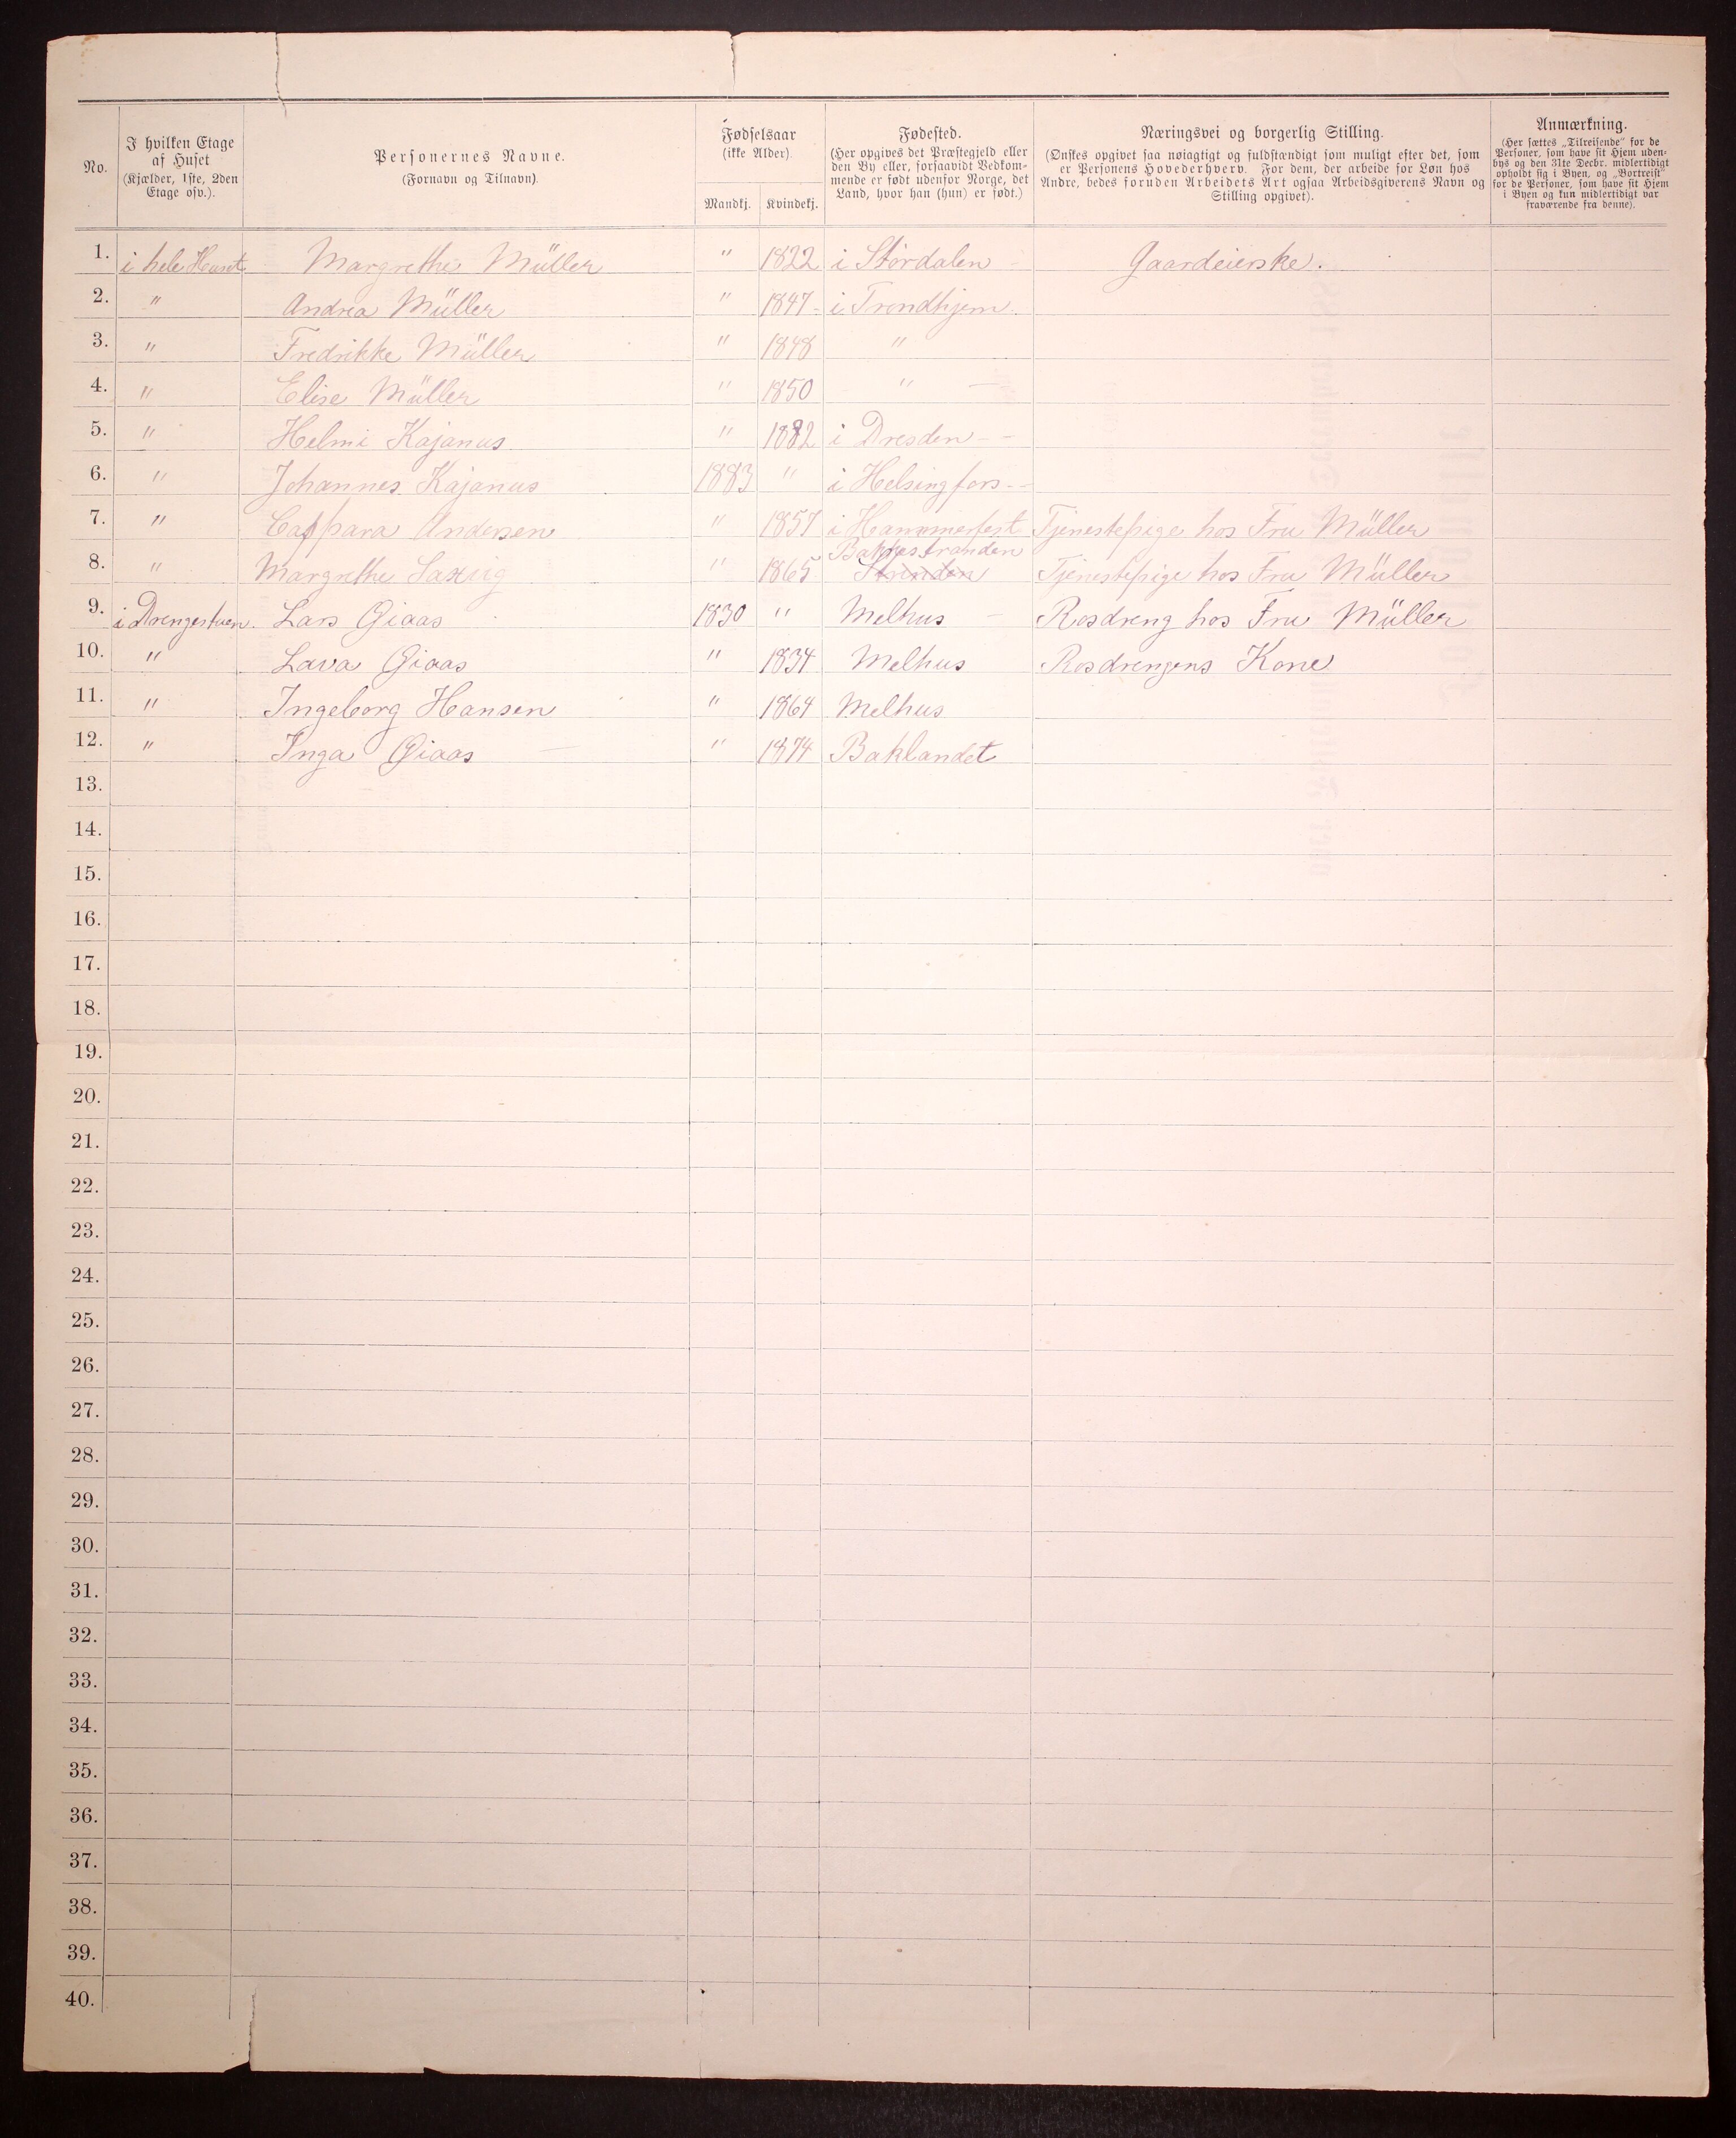 No.
I hvilken Etage
af Huset
(Kjælder, 1ste, 2den
Etage osv.).
Personernes Navne.
(Fornavn og Tilnavn).
Fødselsaar
(ikke Alder).
Mandkj. Kvindekj.
Fødested.
(Her opgives det Præstegjeld eller
den By eller, forsaavidt Vedkom-
mende er født udenfor Norge, det
Land, hvor han (hun) er født.)
Næringsvei og borgerlig Stilling.
(Ønskes opgivet saa nøiagtigt og fuldstændigt som muligt efter det, som
er Personens Hovederhverv. For dem, der arbeide for Løn hos
Andre, bedes foruden Arbeidets Art ogsaa Arbeidsgiverens Navn og
Stilling opgivet).
Anmærkning.
(Her sættes „Tilreisende“ for de
Personer, som have sit Hjem uden-
bys og den 31te Decbr. midlertidigt
opholdt sig i Byen, og „Bortreist“
for de Personer, som have sit Hjem
i Byen og kun midlertidigt var
fraværende fra denne).
1. i hele Huset Margrethe Müller " 1822 i Størdalen - Gaardeierske.
2. " Andrea Müller " 1847 - i Trondhjem.
3. " Fredrikke Müller " 1848 "
4. " Elise Müller " 1850 " —
5. " Helmi Kajanus " 1882 i Dresden - -
6. " Johannes Kajanus 1883 " i Helsingfors. -
7. " Andersen " 1857 i Hammerfest Tjenestepige hos Fru Müller
Bakkestranden
8. " Margrethe Saxvig " 1865 Strinden Tjenestepige hos Fru Müller
9. i Drengestuen. Lars Giaas 1830 " Melhus — Rosdreng hos Fru Müller
10. " Lava Giaas " 1834 Melhus Rosdrengens Kone
11. " Ingeborg Hansen " 1864 Melhus
12. " Inga Giaas — " 1874 Baklandet
13.
14.
15.
16.
17.
18.
19.
20.
21.
22.
23.
24.
25.
26.
27.
28.
29.
30.
31.
32.
33.
34.
35.
36.
37.
38.
39.
40.